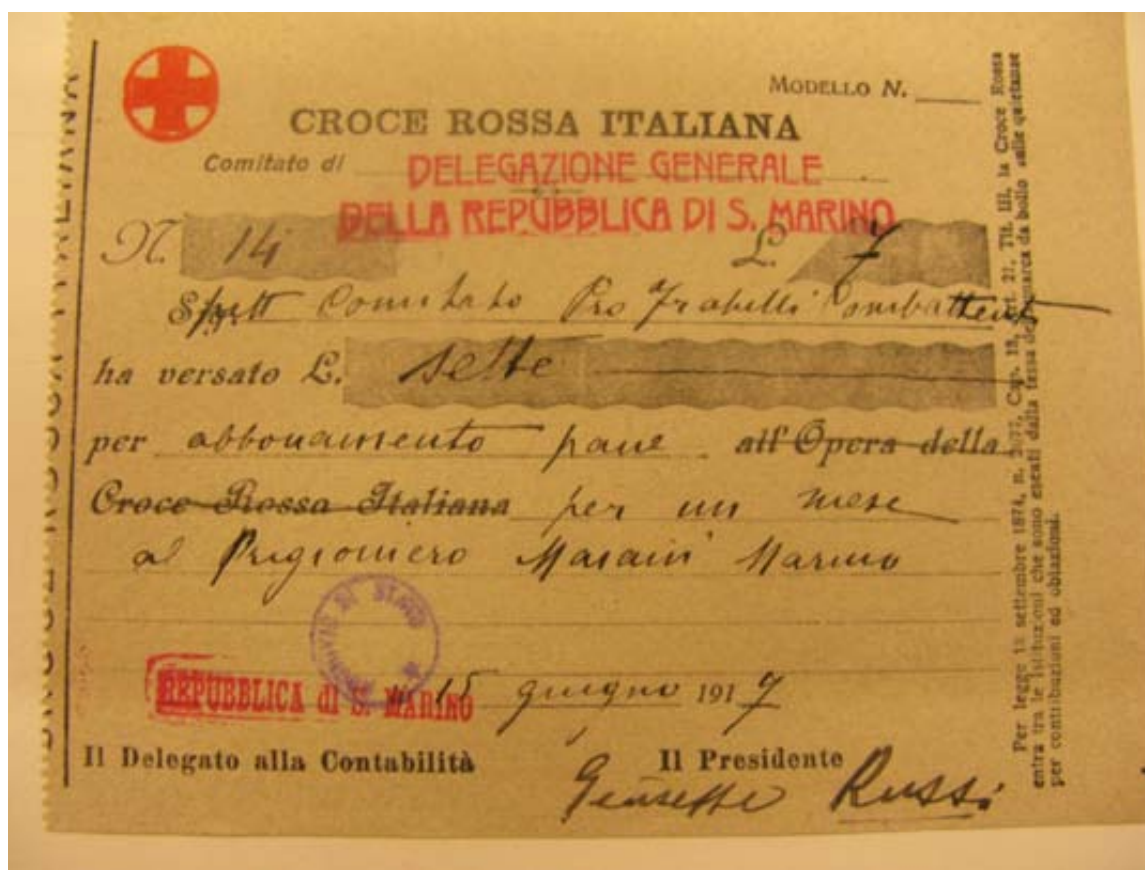 MODELLO N.
CROCE ROSSA ITALIANA
Comitato di DELEGAZIONE GENERALE
DELLA REPUBBLICA DI S. MARINO
N. 14 L. 7
Spett Comitato Pro Fratelli Combattenti
ha versato L. sette
per abbonamento pane all'Opera della
Croce Rossa Italiana per un mese
al Prigioniero Marino
ARCHIVIO DI STATO
REPUBBLICA di S. MARINO 15 giugno 1917
Il Delegato alla Contabilità Il Presidente
Giuseppe Russi
Per legge 18 settembre 1874, n. 2077, Cap. 18, Art. 21, Tit. III, la Croce Rossa
entra tra le istituzioni che sono esenti dalla tassa de marca da bollo sulle quietanze
per contribuzioni ed oblazioni.
CROCE ROSSA ITALIANA